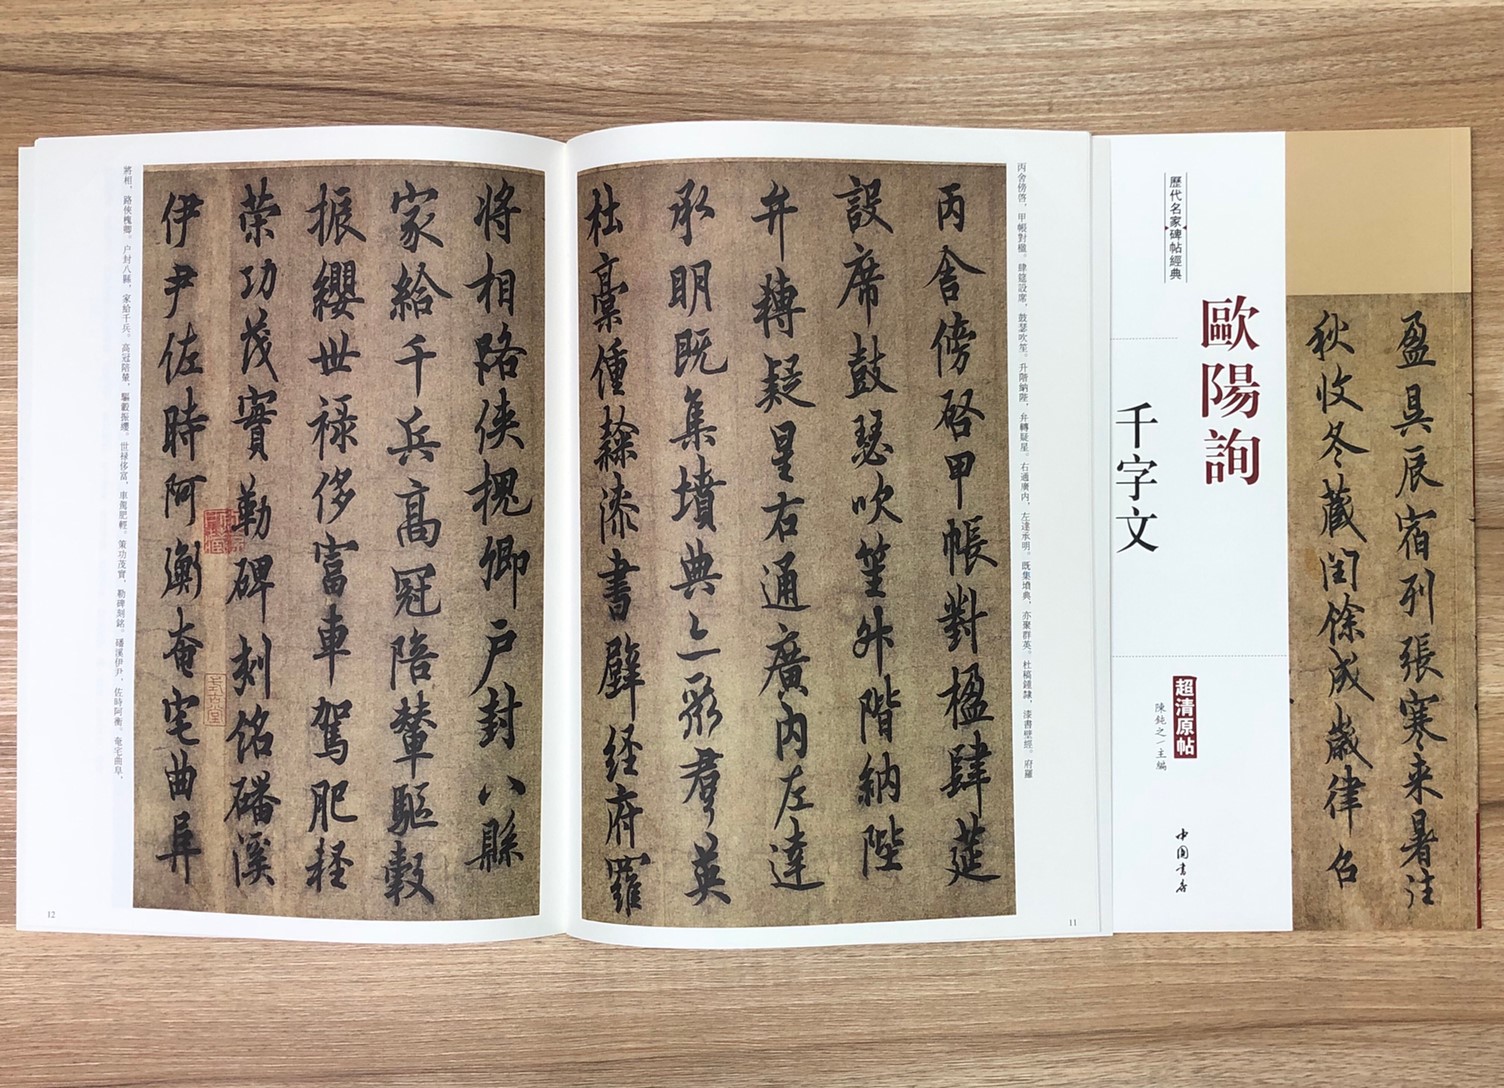 盈昃辰宿列張寒来暑往
秋收冬藏閏餘成歲律吕
歐陽詢
歷代名家碑帖經典
千字文
超清原帖
陳鈍之/主編
中國書店
丙舍傍啓，甲帳對楹。肆筵設席，鼓瑟吹笙。升階納陛，弁轉疑星。右通廣内，左達承明。既集墳典，亦聚群英。杜稿鍾隸，漆書壁經。府羅
丙舍傍啓甲帳對楹肆筵
設席鼓瑟吹笙升階納陛
弁轉疑星右通廣内左達
承明既集墳典亦聚群英
杜稾鍾隸漆書壁经府羅
11
将相路侠槐卿户封八縣
家給千兵高冠陪輦驅轂
振纓世禄侈富車駕肥軽
策功茂實勒碑刻銘磻溪
伊尹佐時阿衡奄宅曲阜
將相，路俠槐卿。户封八縣，家給千兵。高冠陪輦，驅轂振纓。世禄侈富，車駕肥輕。策功茂實，勒碑刻銘。磻溪伊尹，佐時阿衡。奄宅曲阜，
12